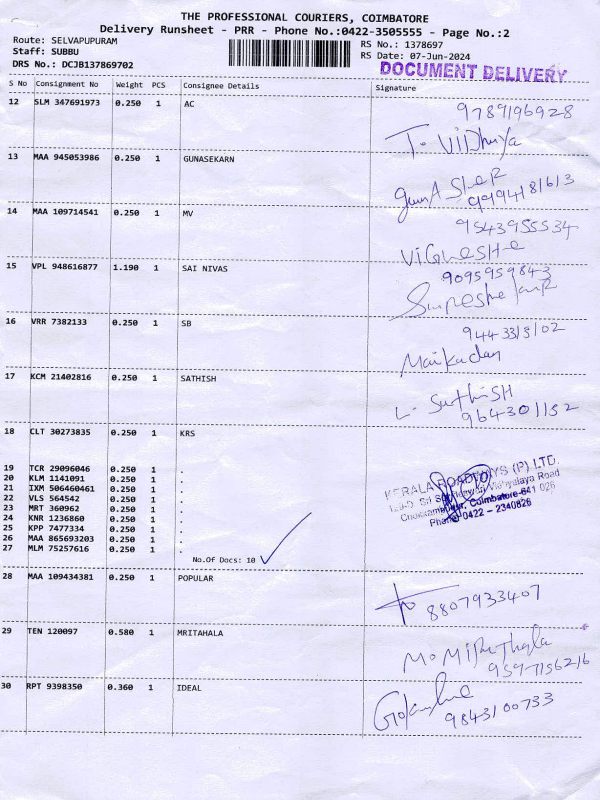 THE PROFESSIONAL COURIERS, COIMBATORE
Delivery Runsheet - PRR - Phone No.:0422-3505555 - Page No.:2
Route: SELVAPUPURAM
Staff: SUBBU
DRS No.: DCJB137869702
RS No.: 1378697
RS Date: 07-Jun-2024
DOCUMENT DELIVERY
S No Consignment No Weight PCS Consignee Details Signature
12 SLM 347691973 0.250 1 AC
9789196928
T. Vidhuya
13 MAA 945053986 0.250 1 GUNASEKARN
14 MAA 109714541 0.250 1 MV
9543955534
VIGNESHE
15 VPL 948616877 1.190 1 SAI NIVAS
9095959843
16 VRR 7382133 0.250 1 SB
Maikadan
17 KCM 21402816 0.250 1 SATHISH
L. SatHiSH
964301152
18 CLT 30273835 0.250 1 KRS
19 TCR 29096046 0.250 1 .
20 KLM 1141091 0.250 1 .
21 IXM 506460461 0.250 1 .
22 VLS 564542 0.250 1 .
23 MRT 360962 0.250 1 .
24 KNR 1236860 0.250 1 .
25 KPP 7477334 0.250 1 .
26 MAA 865693203 0.250 1 .
27 MLM 75257616 0.250 1 .
No.Of Docs: 10
KERALA ROADWAYS (P) LTD.
Vidhyalaya Road
Coimbatore-641 026
Phone: 0422 - 2340826
28 MAA 109434381 0.250 1 POPULAR
8807933407
29 TEN 120097 0.580 1 MRITAHALA
M. MiRuThala
9597156216
30 RPT 9398350 0.360 1 IDEAL
9843100733